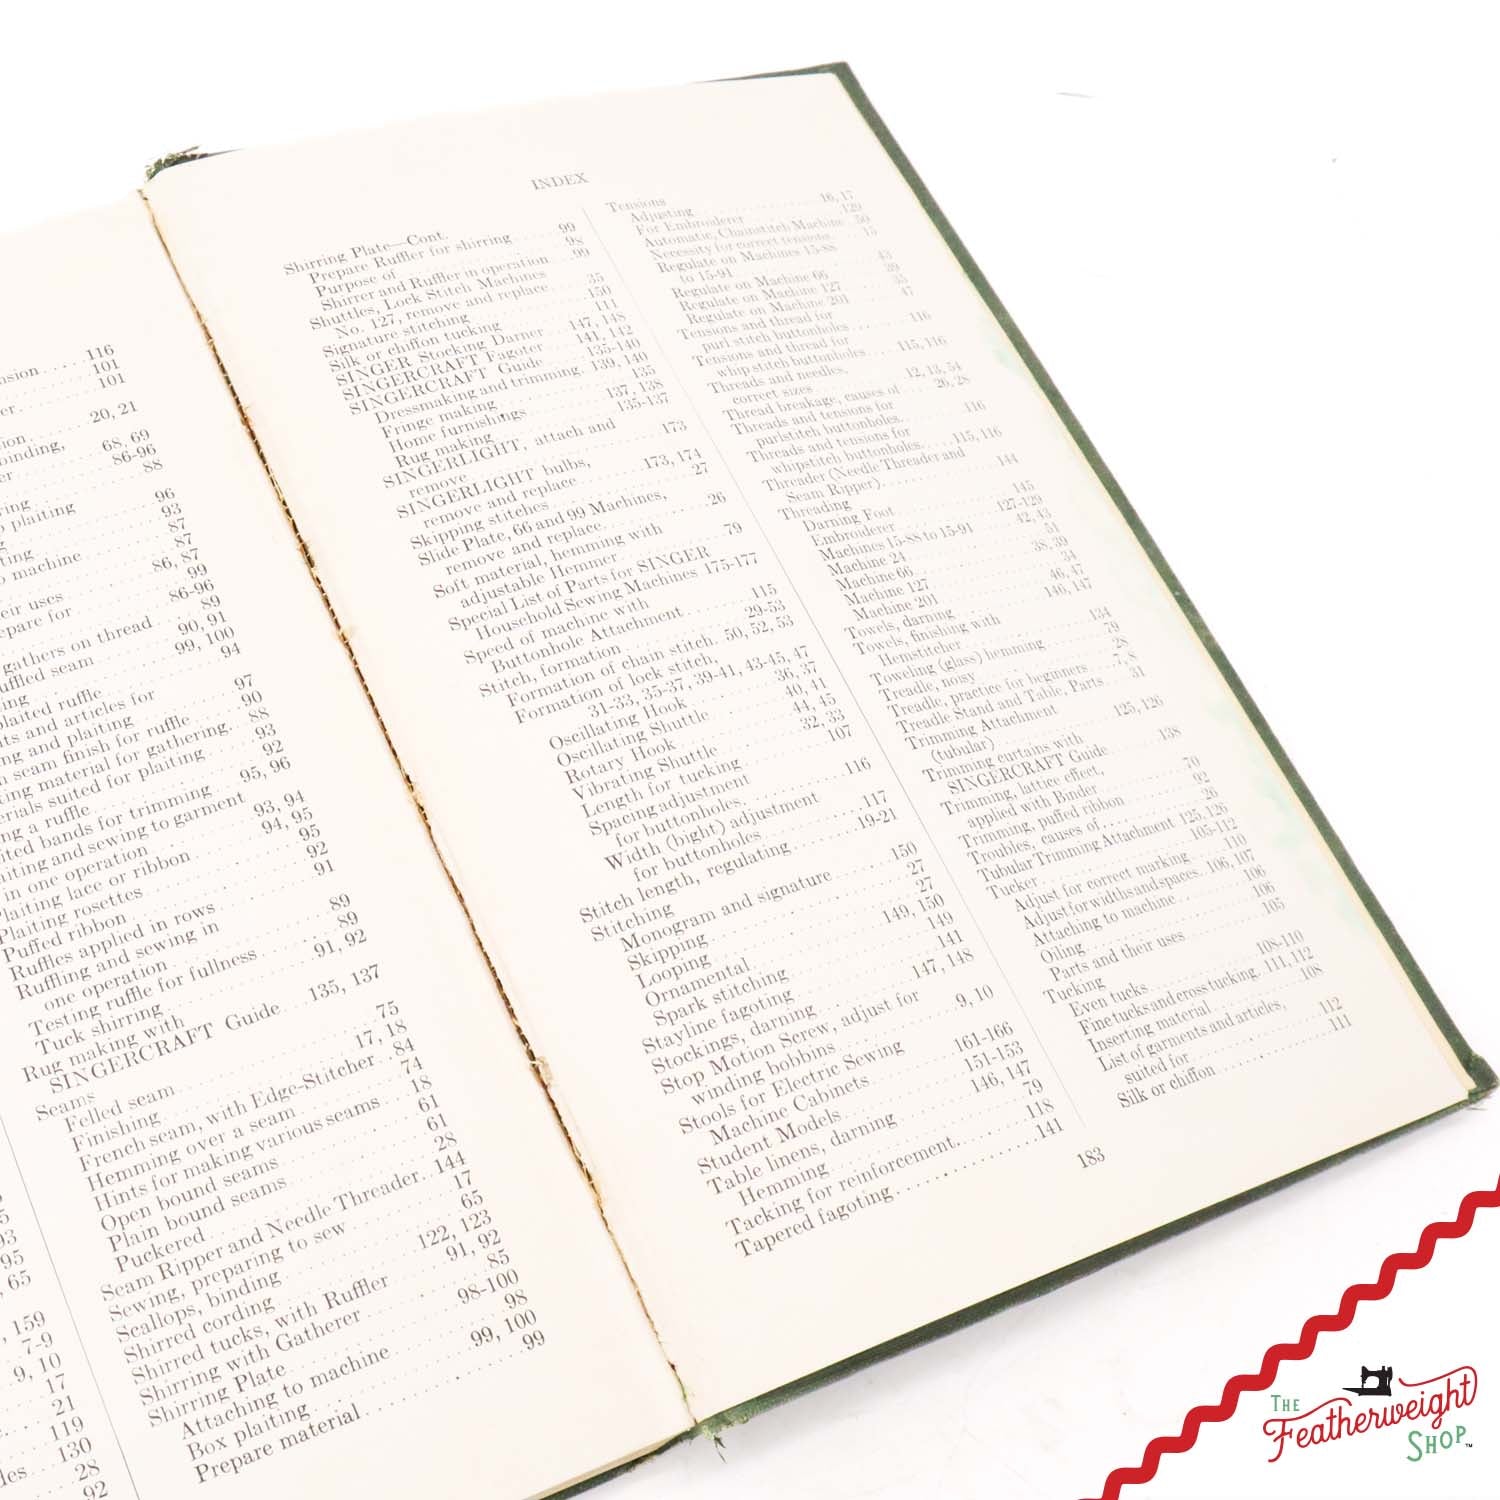 nsion.....116
er.......101
101
sion......20, 21
binding,
68, 69
er......86-96
88
ring......96
p plaiting
93
ng......87
iting......87
o machine......86, 87
99
eir uses......86-96
epare for......89
gathers on thread...90, 91
uffled seam......99, 100
ing......94
plaited ruffle
nts and articles for
ng and plaiting......97
n seam finish for ruffle......90
ting material for gathering..88
erials suited for plaiting......93
ng a ruffle......92
ited bands for trimming....95, 96
aiting and sewing to garment
in one operation......93, 94
Plaiting lace or ribbon......94, 95
Plaiting rosettes......95
Puffed ribbon......92
Ruffles applied in rows......91
Ruffling and sewing in
one operation......89
Testing ruffle for fullness......89
Tuck shirring......91, 92
Rug making with
SINGERCRAFT Guide...135, 137
Seams
Felled seam......75
Finishing......17, 18
French seam, with Edge-Stitcher..84
Hemming over a seam......74
Hints for making various seams...18
Open bound seams......61
Plain bound seams......61
Puckered......28
Seam Ripper and Needle Threader..144
Sewing, preparing to sew......17
Scallops, binding......65
Shirred cording......122, 123
Shirred tucks, with Ruffler......91, 92
Shirring with Gatherer......85
Shirring Plate......98-100
Attaching to machine......98
Box plaiting......99, 100
Prepare material......99
5
93
95
, 65
, 159
7-9
9, 10
17
21
119
130
des...28
92
INDEX
Shirring Plate—Cont.
Prepare Ruffler for shirring......99
Purpose of......98
Shirrer and Ruffler in operation...99
Shuttles, Lock Stitch Machines
No. 127, remove and replace....35
Signature stitching......150
Silk or chiffon tucking......111
SINGER Stocking Darner...147, 148
SINGERCRAFT Fagoter...141, 142
SINGERCRAFT Guide...135-140
Dressmaking and trimming. 139, 140
Fringe making......135
Home furnishings......137, 138
Rug making......135-137
SINGERLIGHT, attach and
remove......173
SINGERLIGHT bulbs,
remove and replace......173, 174
Skipping stitches......27
Slide Plate, 66 and 99 Machines,
remove and replace......26
Soft material, hemming with
adjustable Hemmer......79
Special List of Parts for SINGER
Household Sewing Machines 175-177
Speed of machine with
Buttonhole Attachment......115
Stitch, formation......29-53
Formation of chain stitch. 50, 52, 53
Formation of lock stitch,
31-33, 35-37, 39-41, 43-45, 47
Oscillating Hook......36, 37
Oscillating Shuttle......40, 41
Rotary Hook......44, 45
Vibrating Shuttle......32, 33
Length for tucking......107
Spacing adjustment
for buttonholes......116
Width (bight) adjustment
for buttonholes......117
Stitch length, regulating......19-21
Stitching
Monogram and signature......150
Skipping......27
Looping......27
Ornamental......149, 150
Spark stitching......149
Stayline fagoting......141
Stockings, darning......147, 148
Stop Motion Screw, adjust for
winding bobbins......9, 10
Stools for Electric Sewing
Machine Cabinets......161-166
Student Models......151-153
Table linens, darning......146, 147
Hemming......79
Tacking for reinforcement......118
Tapered fagoting......141
Tensions
Adjusting......16, 17
For Embroiderer......129
Automatic, Chainstitch Machine 50
Necessity for correct tensions....15
Regulate on Machines 15-88
to 15-91......43
Regulate on Machine 66......39
Regulate on Machine 127......35
Regulate on Machine 201......47
Tensions and thread for
purl stitch buttonholes......116
Tensions and thread for
whip stitch buttonholes....115, 116
Threads and needles,
correct sizes......12, 13, 54
Thread breakage, causes of......26, 28
Threads and tensions for
purlstitch buttonholes......116
Threads and tensions for
whipstitch buttonholes....115, 116
Threader (Needle Threader and
Seam Ripper)......144
Threading
Darning Foot......145
Embroiderer......127-129
Machines 15-88 to 15-91......42, 43
Machine 24......51
Machine 66......38, 39
Machine 127......34
Machine 201......46, 47
Towels, darning......146, 147
Towels, finishing with
Hemstitcher......134
Toweling (glass) hemming......79
Treadle, noisy......28
Treadle, practice for beginners...7, 8
Treadle Stand and Table, Parts...31
Trimming Attachment
(tubular)......125, 126
Trimming curtains with
SINGERCRAFT Guide......138
Trimming, lattice effect,
applied with Binder......70
Trimming, puffed ribbon......92
Troubles, causes of......26
Tubular Trimming Attachment 125, 126
Tucker......105-112
Adjust for correct marking......110
Adjust for widths and spaces. 106, 107
Attaching to machine......106
Oiling......106
Parts and their uses......105
Tucking
Even tucks......108-110
Fine tucks and cross tucking. 111, 112
Inserting material......108
List of garments and articles,
suited for......112
Silk or chiffon......111
183
THE
Featherweight
SHOP™